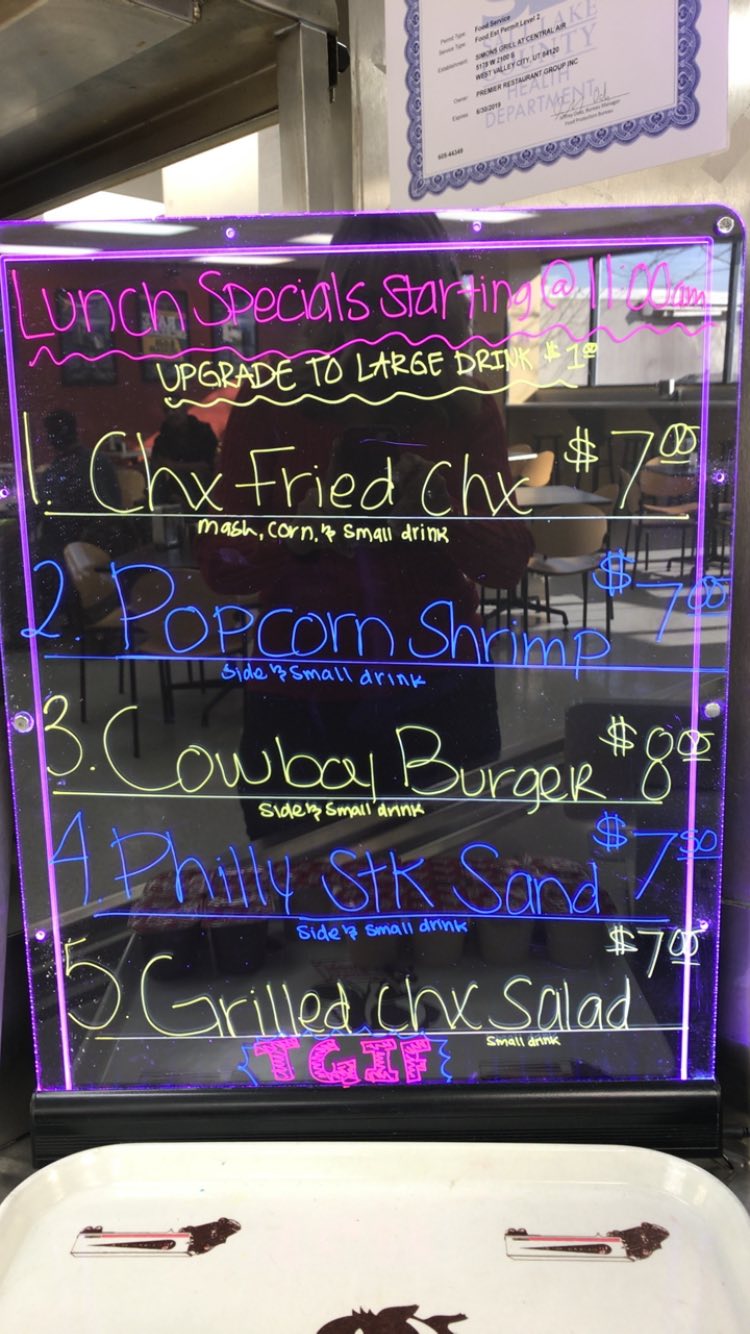 Permit Type: Food Service
Service Type: Food Est Permit Level 2
Establishment: SIMONS GRILL AT CENTRAL AIR
5178 W 2100 S
WEST VALLEY CITY, UT 84120
Owner: PREMIER RESTAURANT GROUP INC
Expires: 6/30/2019
LAKE
COUNTY
HEALTH
DEPARTMENT
Bureau Manager
Food Protection Bureau
Lunch Specials Starting @ 11:00am
UPGRADE TO LARGE DRINK $1.00
1. Chx Fried Chx $7.00
mash, corn, & small drink
2. Popcorn Shrimp $7.00
side & small drink
3. Cowboy Burger $8.00
side & small drink
4. Philly Stk Sand $7.50
side & small drink
5. Grilled chx Salad $7.00
small drink
TGIF